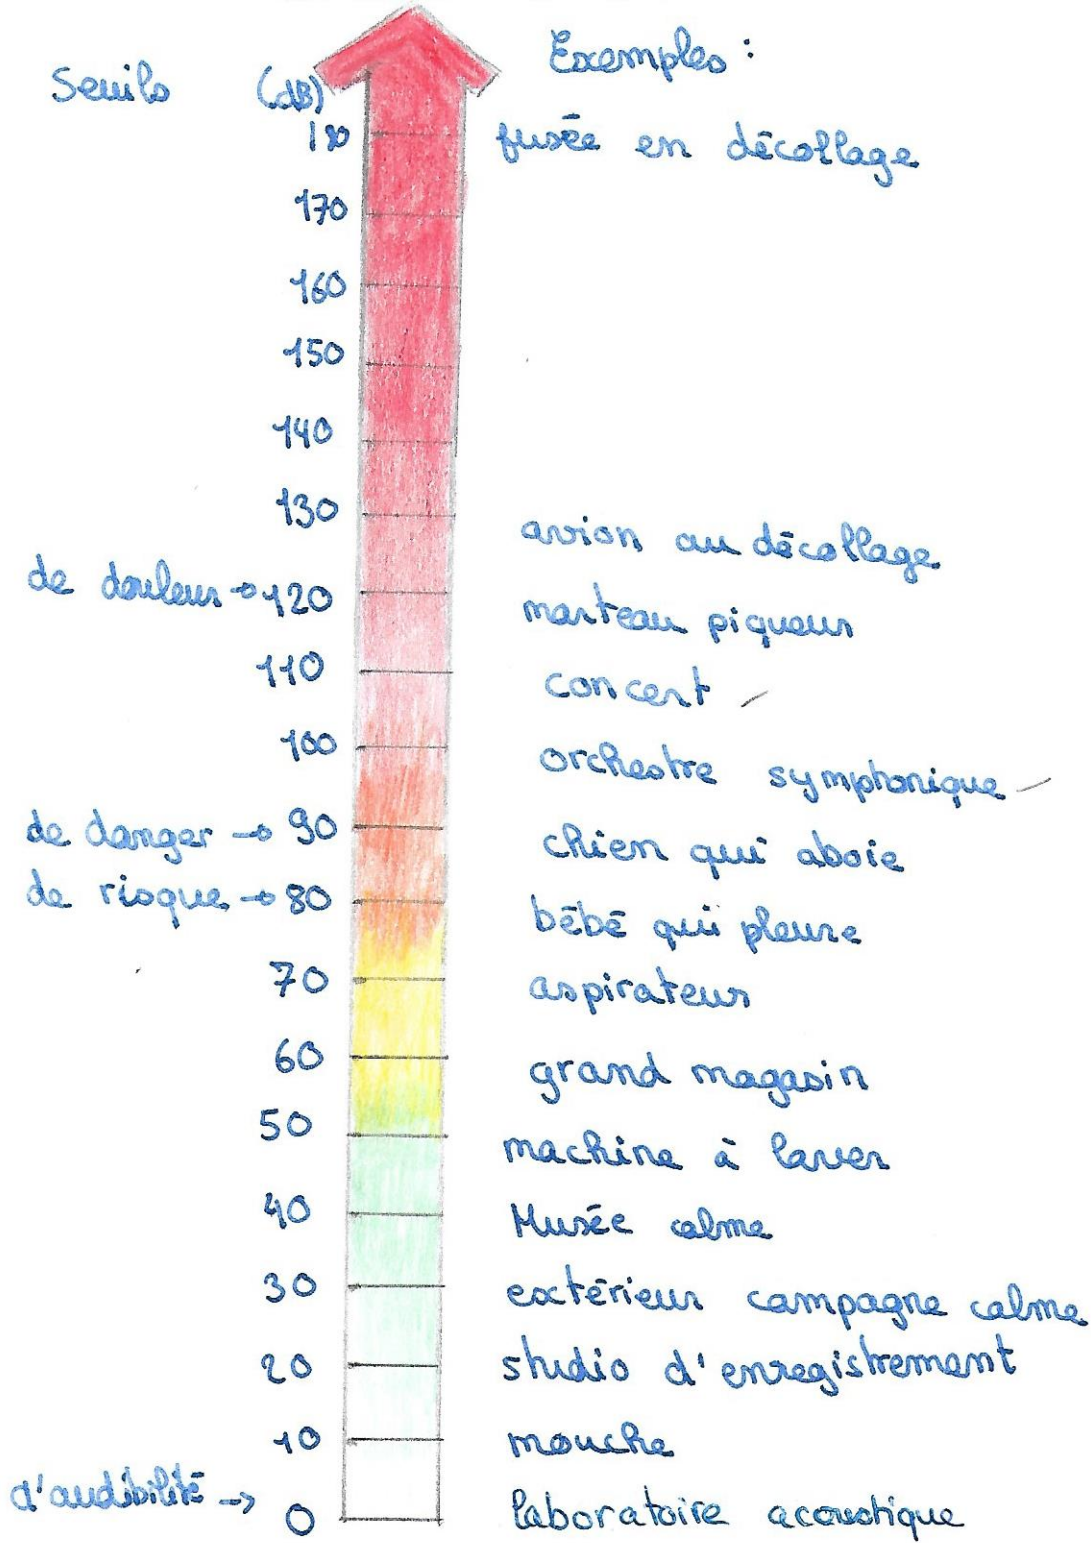 Seuils (dB) Exemples :
180 fusée en décollage
170
160
150
140
130
avion au décollage
de douleur → 120 marteau piqueur
110 concert
100 orchestre symphonique
de danger → 90 chien qui aboie
de risque → 80 bébé qui pleure
70 aspirateur
60 grand magasin
50 machine à laver
40 Musée calme
30 extérieur campagne calme
20 studio d'enregistrement
10 mouche
d'audibilité → 0 laboratoire acoustique